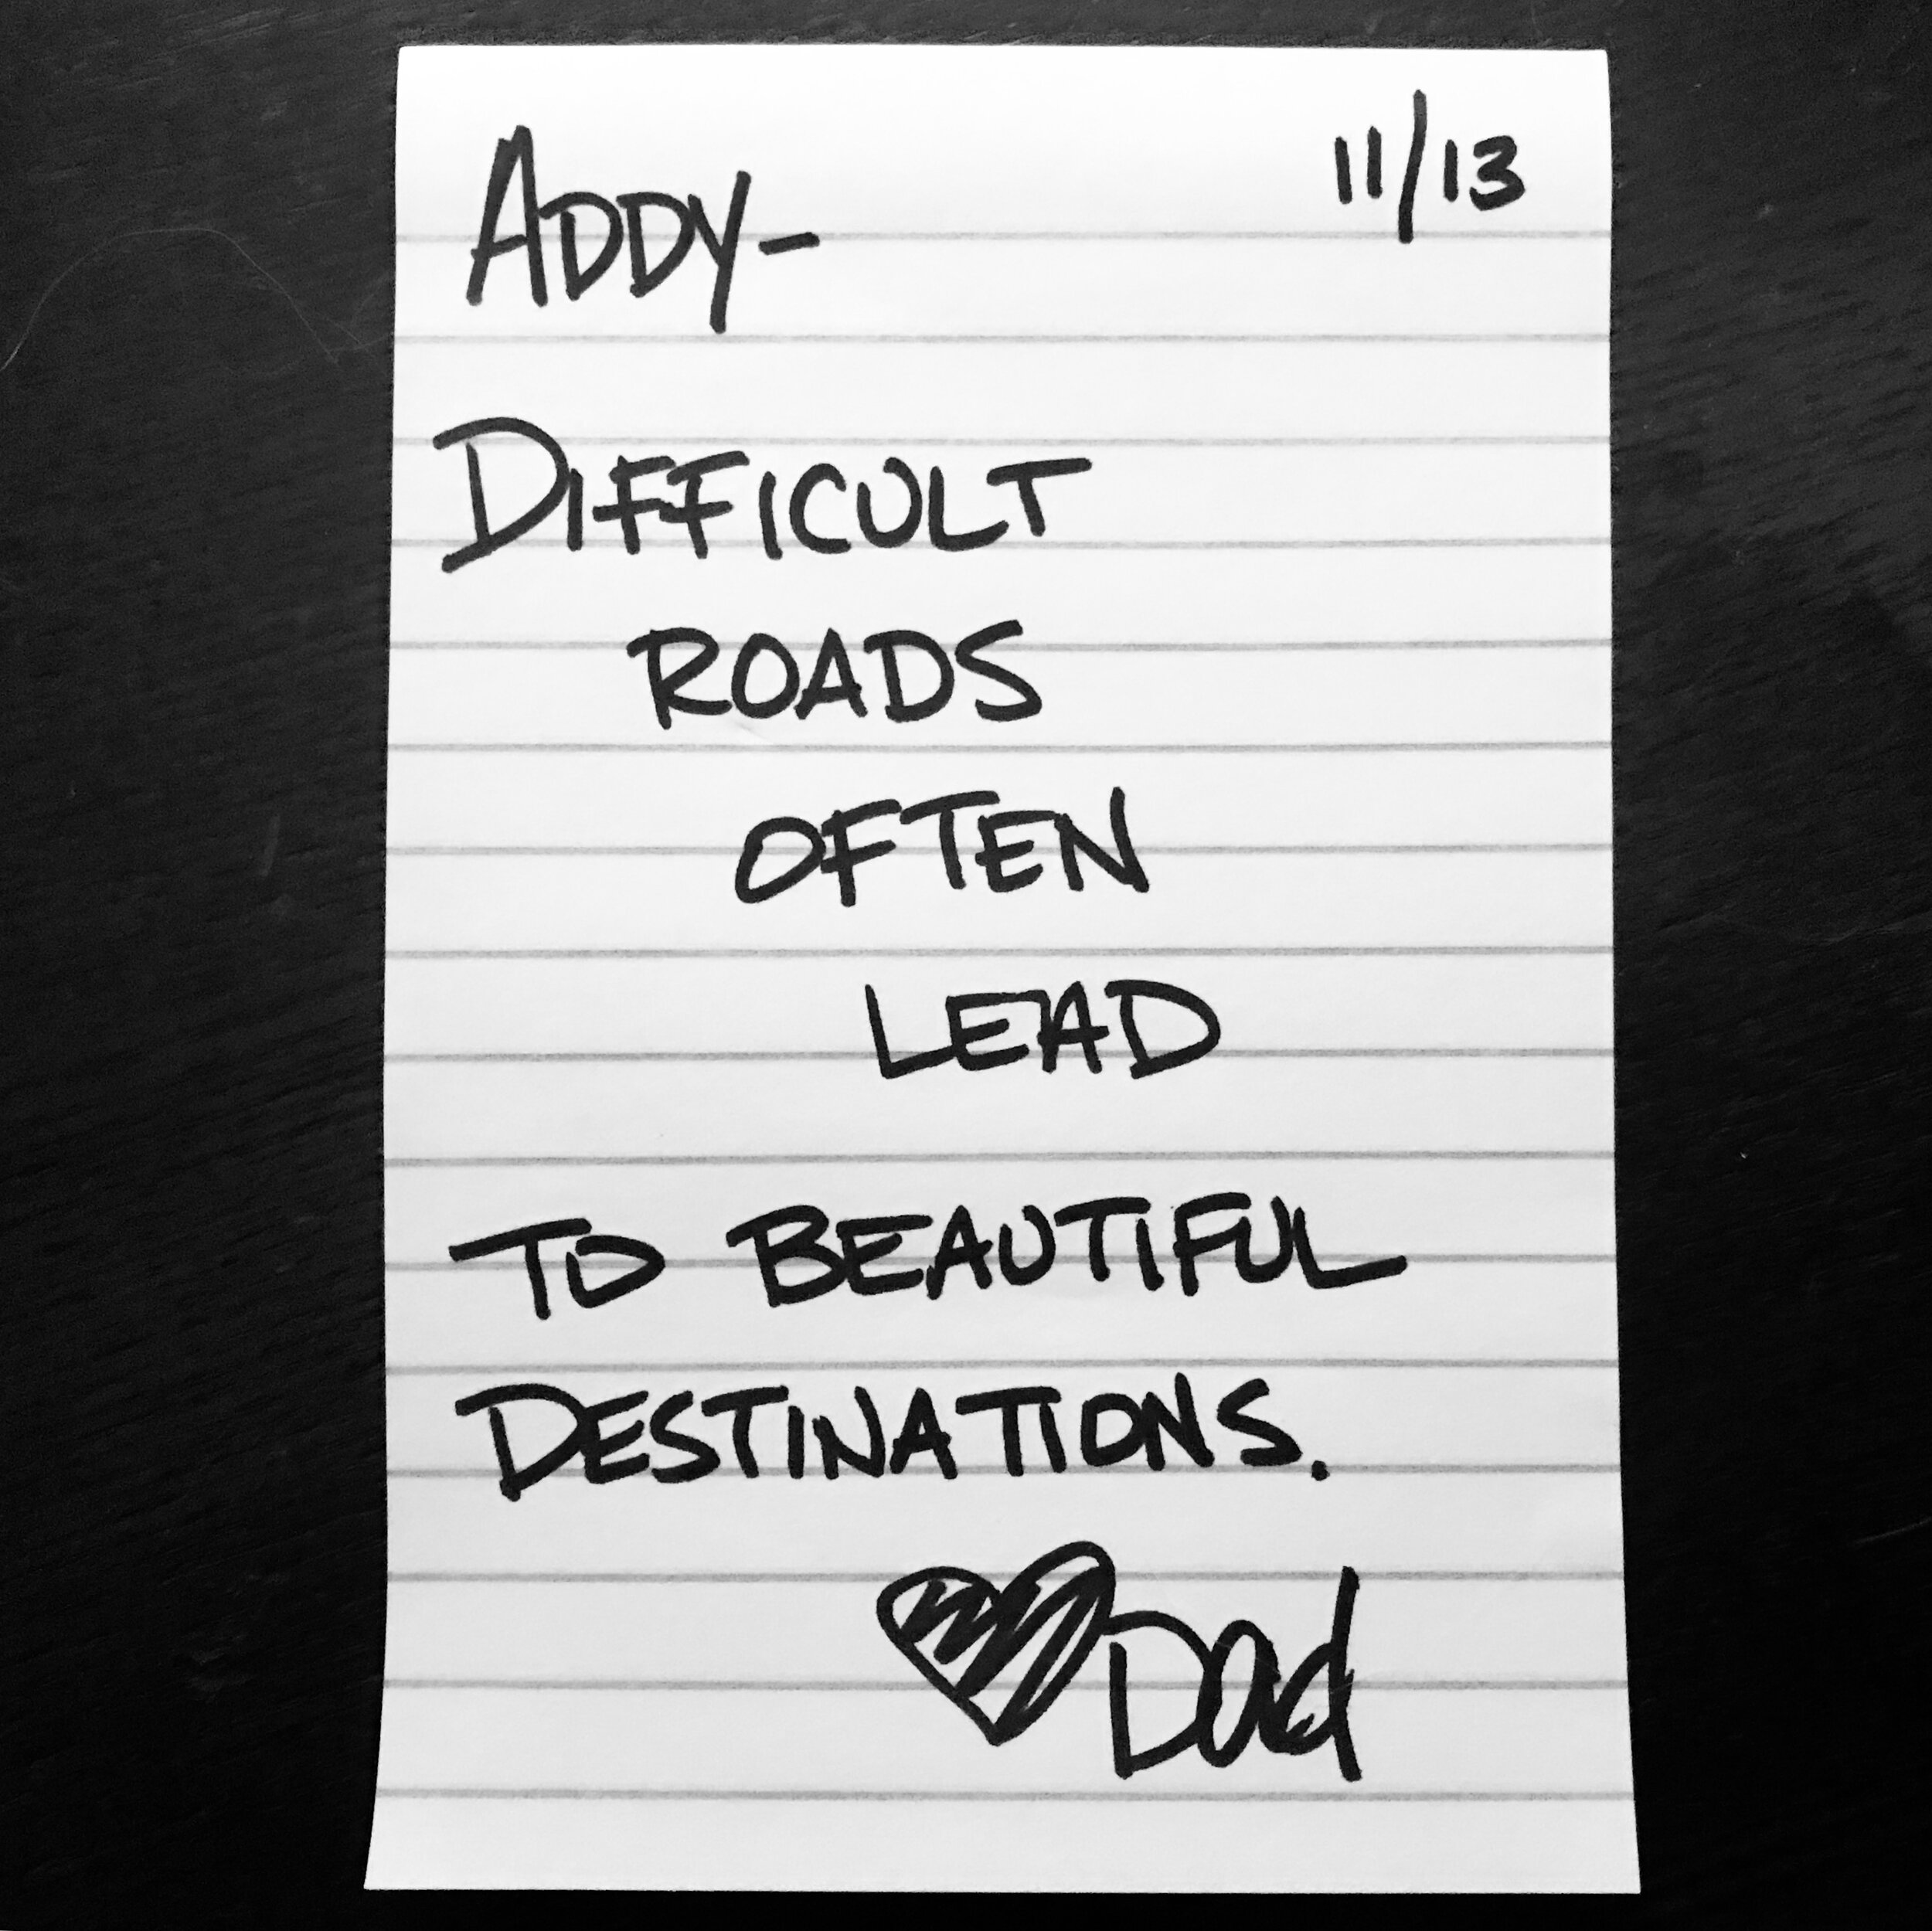 ADDY- 11/13
DIFFICULT
ROADS
OFTEN
LEAD
TO BEAUTIFUL
DESTINATIONS.
Dad